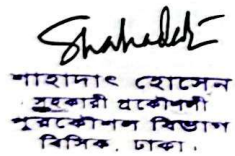 Shahadat
শাহাদাৎ হোসেন
সহকারী প্রকৌশলী
পুরকৌশল বিভাগ
বিসিক, ঢাকা।